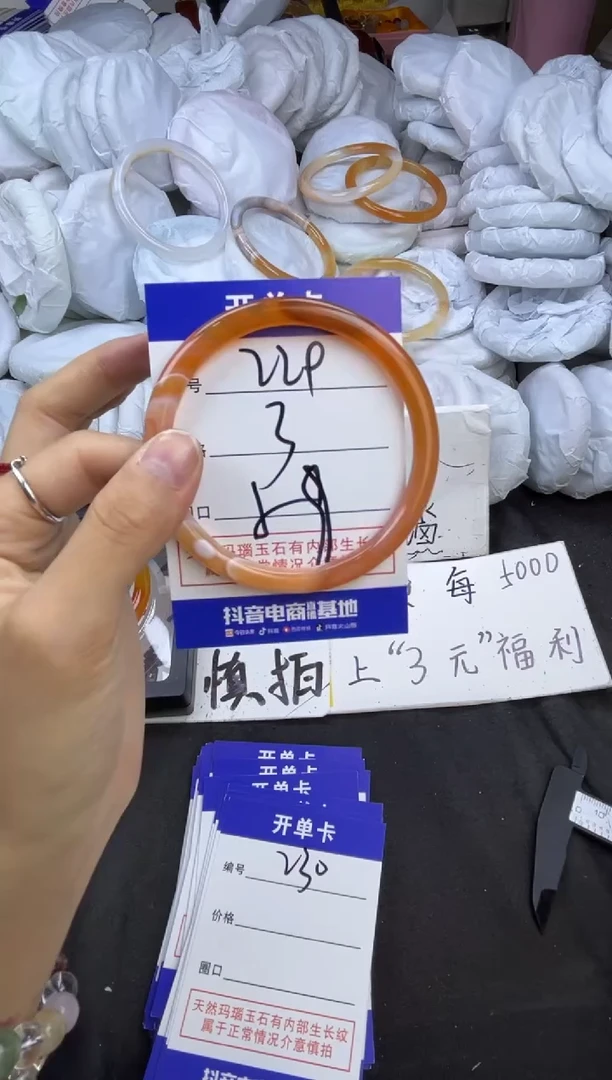 开单卡
号 229
3
口 59
玛瑙玉石有内部生长
抖音电商直播基地
每 5000
慎拍 上“3元”福利
开单卡
开单卡
开单卡
开单卡
编号 230
价格
圈口
天然玛瑙玉石有内部生长纹
属于正常情况介意慎拍